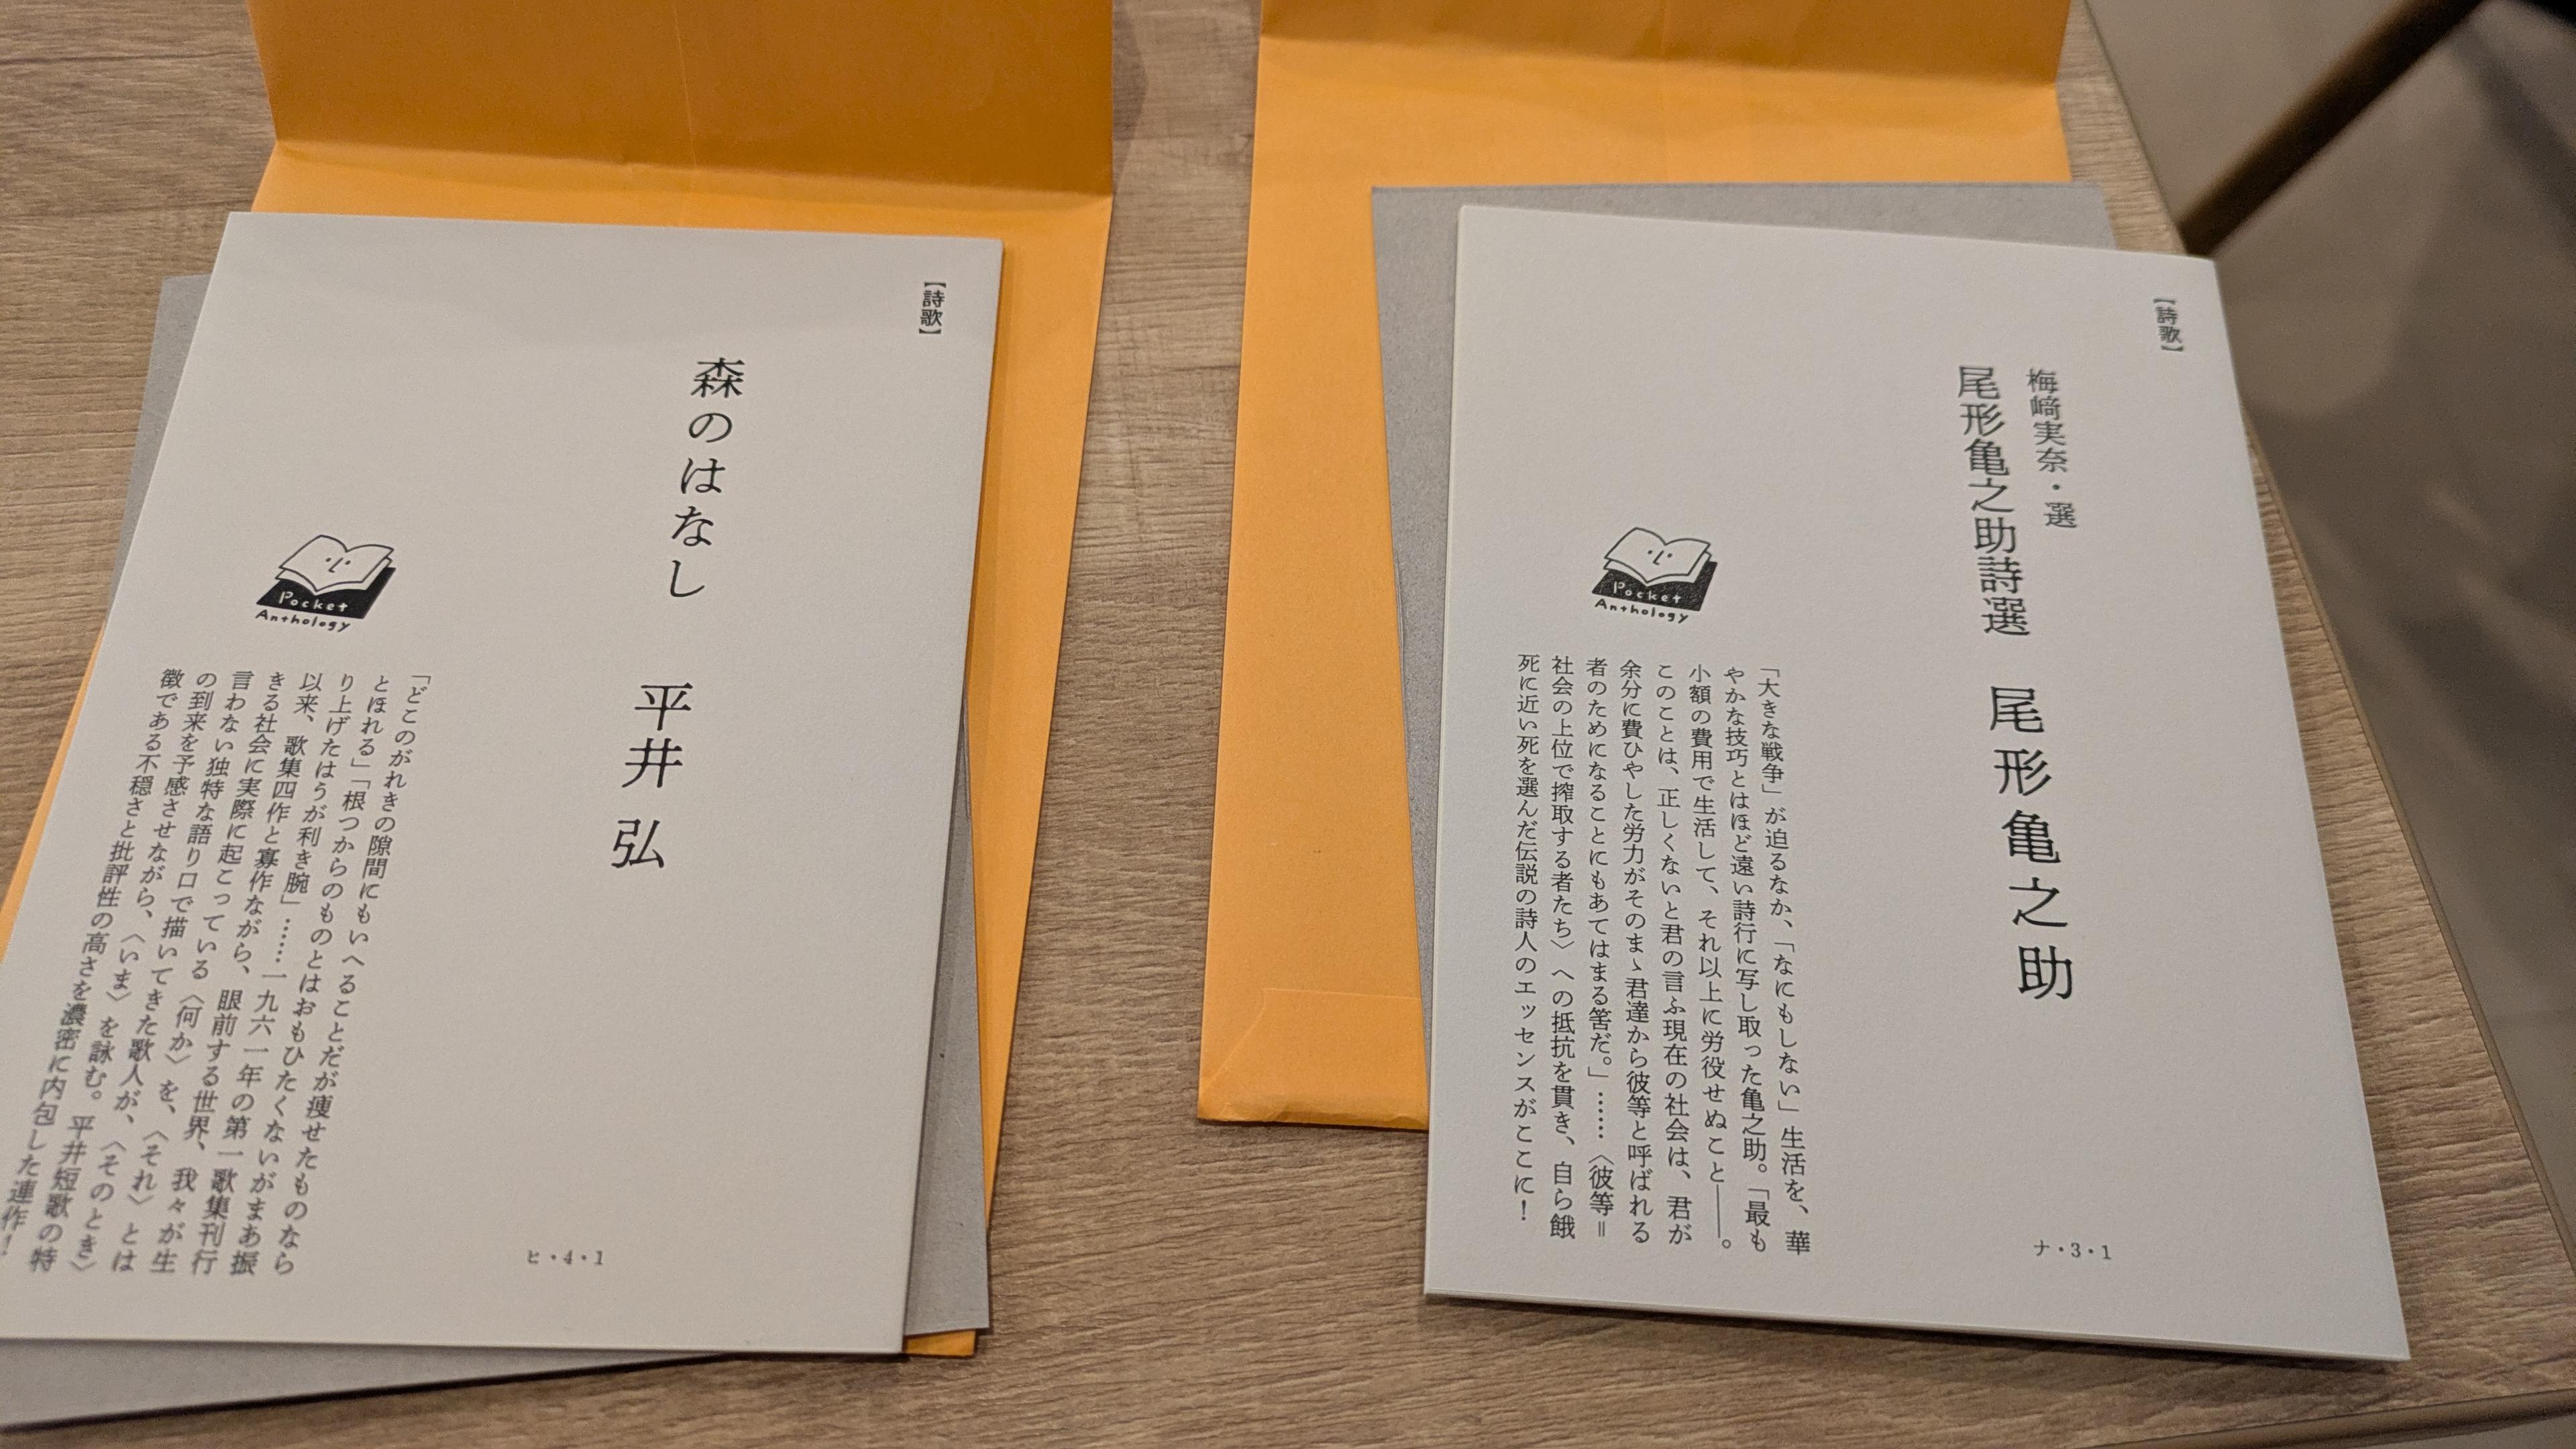 【詩歌】
森のはなし　平井 弘
Pocket
Anthology
「どこのがれきの隙間にもいへることだが痩せたものなら
とほれる」「根つからのものとはおもひたくないがまあ振
り上げたはうが利き腕」……一九六一年の第一歌集刊行
以来、歌集四作と寡作ながら、眼前する世界、我々が生
きる社会に実際に起こっている〈何か〉を、〈それ〉とは
言わない独特な語り口で描いてきた歌人が、〈そのとき〉
の到来を予感させながら、〈いま〉を詠む。平井短歌の特
徴である不穏さと批評性の高さを濃密に内包した連作！
ヒ・4・1
【詩歌】
梅﨑実奈・選
尾形亀之助詩選　尾形亀之助
Pocket
Anthology
「大きな戦争」が迫るなか、「なにもしない」生活を、華
やかな技巧とはほど遠い詩行に写し取った亀之助。「最も
小額の費用で生活して、それ以上に労役せぬこと――。
このことは、正しくないと君の言ふ現在の社会は、君が
余分に費ひやした労力がそのまゝ君達から彼等と呼ばれる
者のためになることにもあてはまる筈だ。」……〈彼等＝
社会の上位で搾取する者たち〉への抵抗を貫き、自ら餓
死に近い死を選んだ伝説の詩人のエッセンスがここに！
ナ・3・1